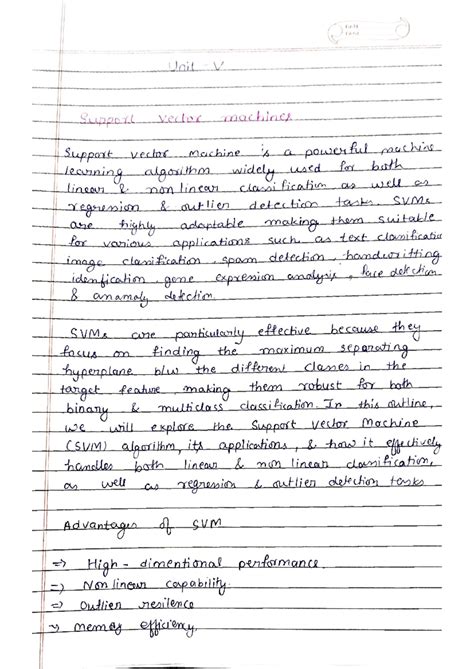 Unit - V
Support vector machines
Support vector Machine is a powerful machine
learning algorithm widely used for both
linear & non linear classification as well as
regression & outlier detection tasks. SVMs
are highly adaptable making them suitable
for various applications such as text classification
image classification, spam detection, handwritting
idenfication gene expression analysis, face detection
& anamaly detection
SVMs are particularly effective because they
focus on finding the maximum separating
hyperplane b/w the different classes in the
target feature, making them robust for both
binary & multiclass classification. In this outline,
we will explore the Support Vector Machine
(SVM) algorithm, its applications, & how it effectively
handles both linear & non linear classification,
as well as regression & outlier detection tasks
Advantages of SVM
=> High - dimentional performance.
=> Non linear capability.
=> Outlier resilence
=> memory efficiency.